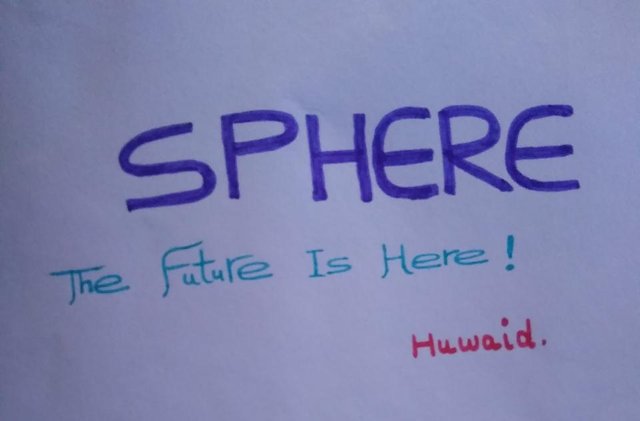 SPHERE
The Future Is Here!
Huwaid.